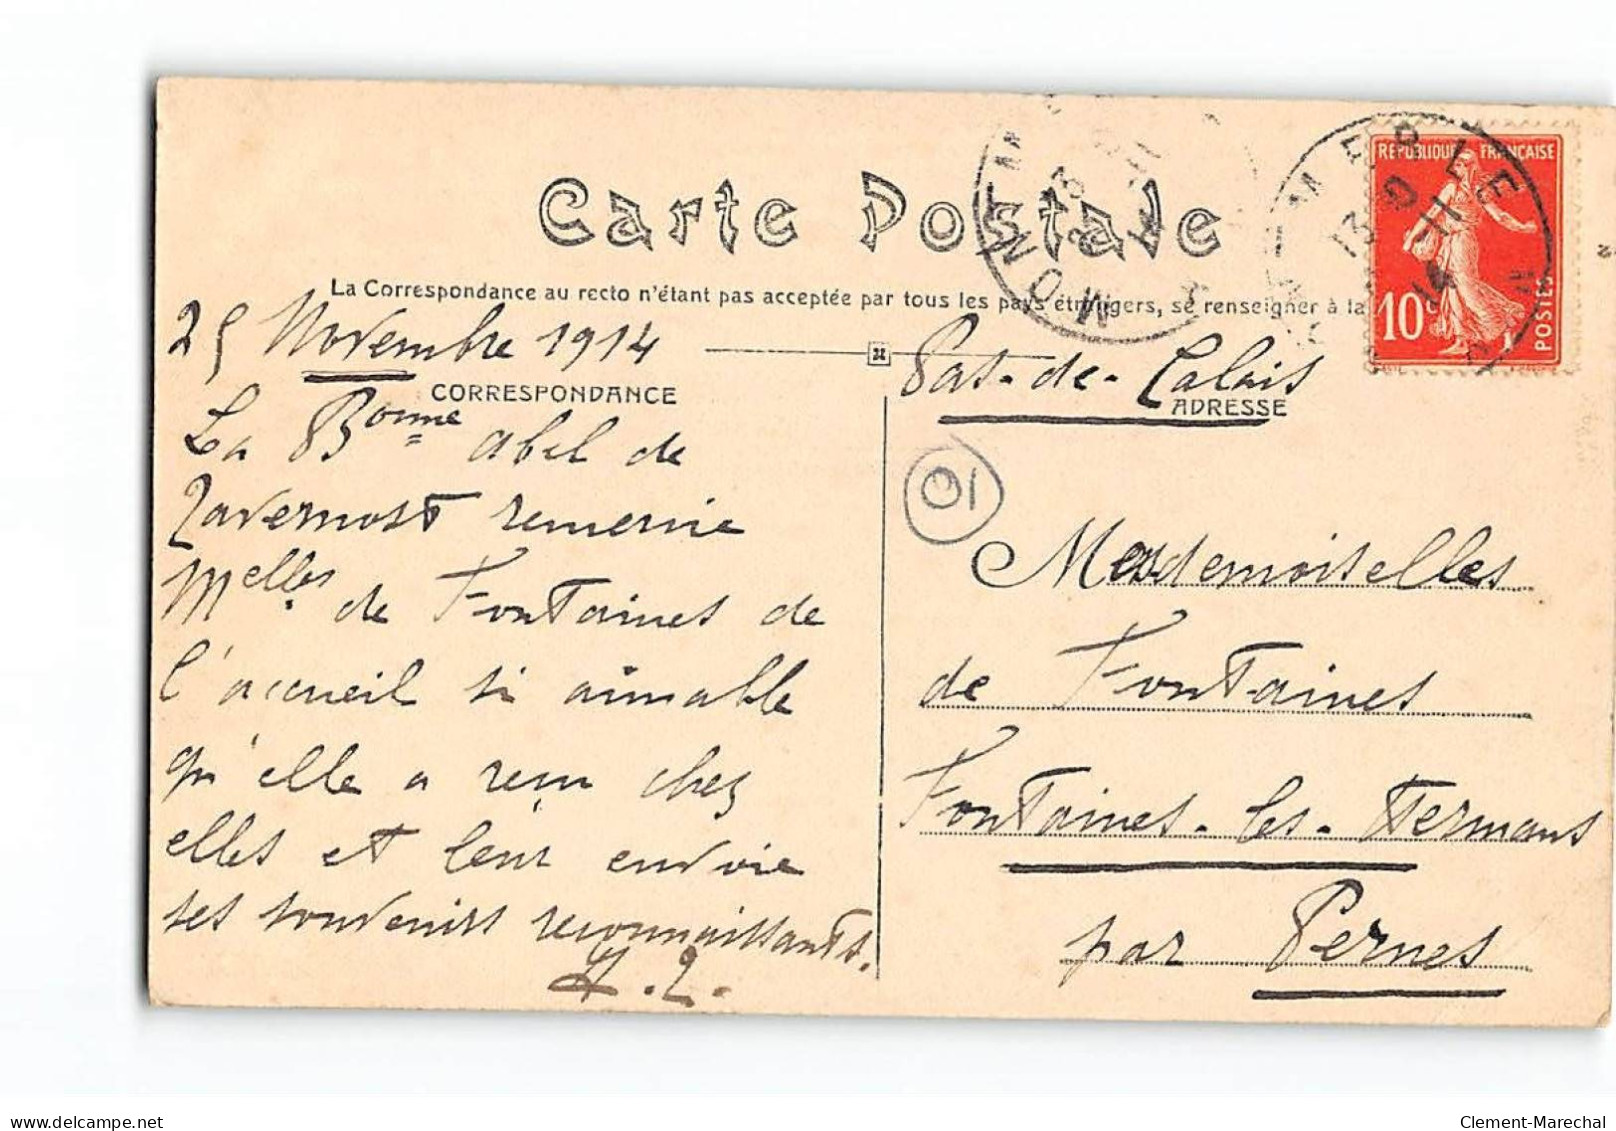 Carte Postale
La Correspondance au recto n'étant pas acceptée par tous les pays étrangers, se renseigner à la
RÉPUBLIQUE FRANÇAISE
10 c
POSTES
25 Novembre 1914
CORRESPONDANCE
La Bonne Abel de
Lavernost remercie
Melles de Fontaines de
l'accueil si aimable
qu'elle a reçu chez
elles et leur envoie
ses souvenirs reconnaissants.
Pas-de-Calais
ADRESSE
01
Mesdemoiselles
de Fontaines
Fontaines-les-Hermans
par Pernes
Clement-Marechal
delcampe.net